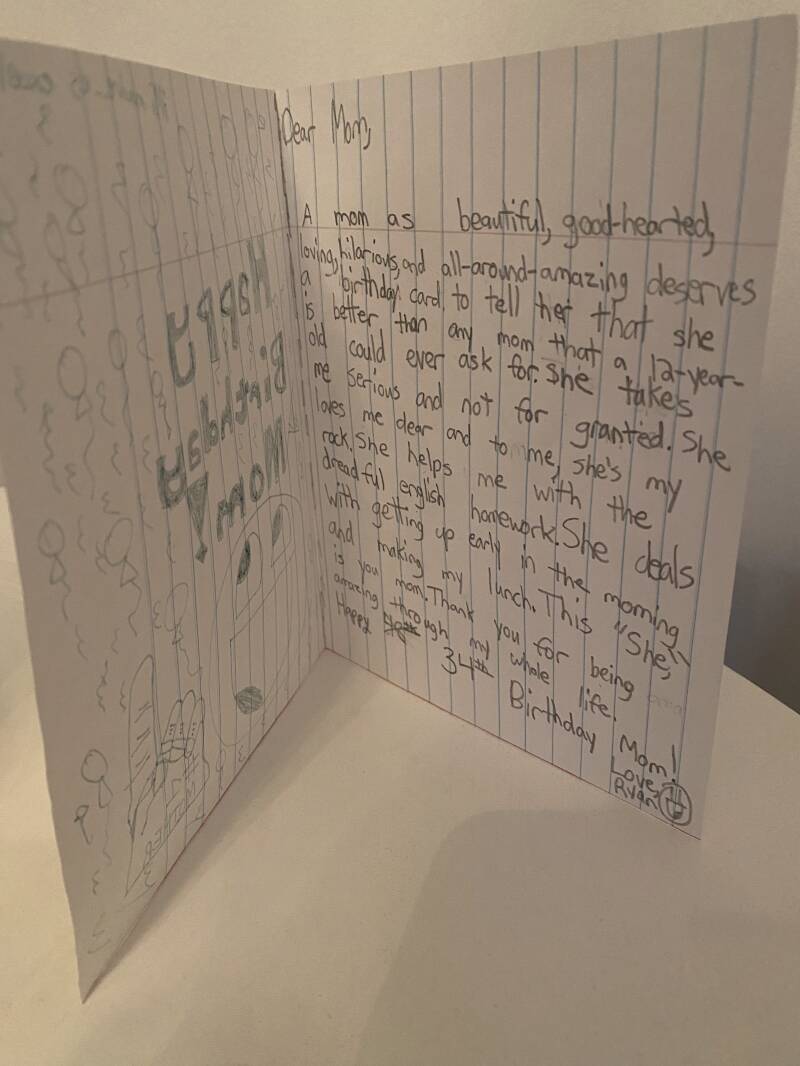 Happy
Birthday
MOM!
Dear Mom,
A mom as beautiful, good-hearted,
loving, hilarious, and all-around-amazing deserves
a birthday card to tell her that she
is better than any mom that a 12-year-
old could ever ask for. She takes
me serious and not for granted. She
loves me dear and to me, she's my
rock. She helps me with the
dreadful english homework. She deals
with getting up early in the morning
and making my lunch. This "She,"
is you mom. Thank you for being
amazing through my whole life.
Happy 34th Birthday Mom!
Love,
Ryan